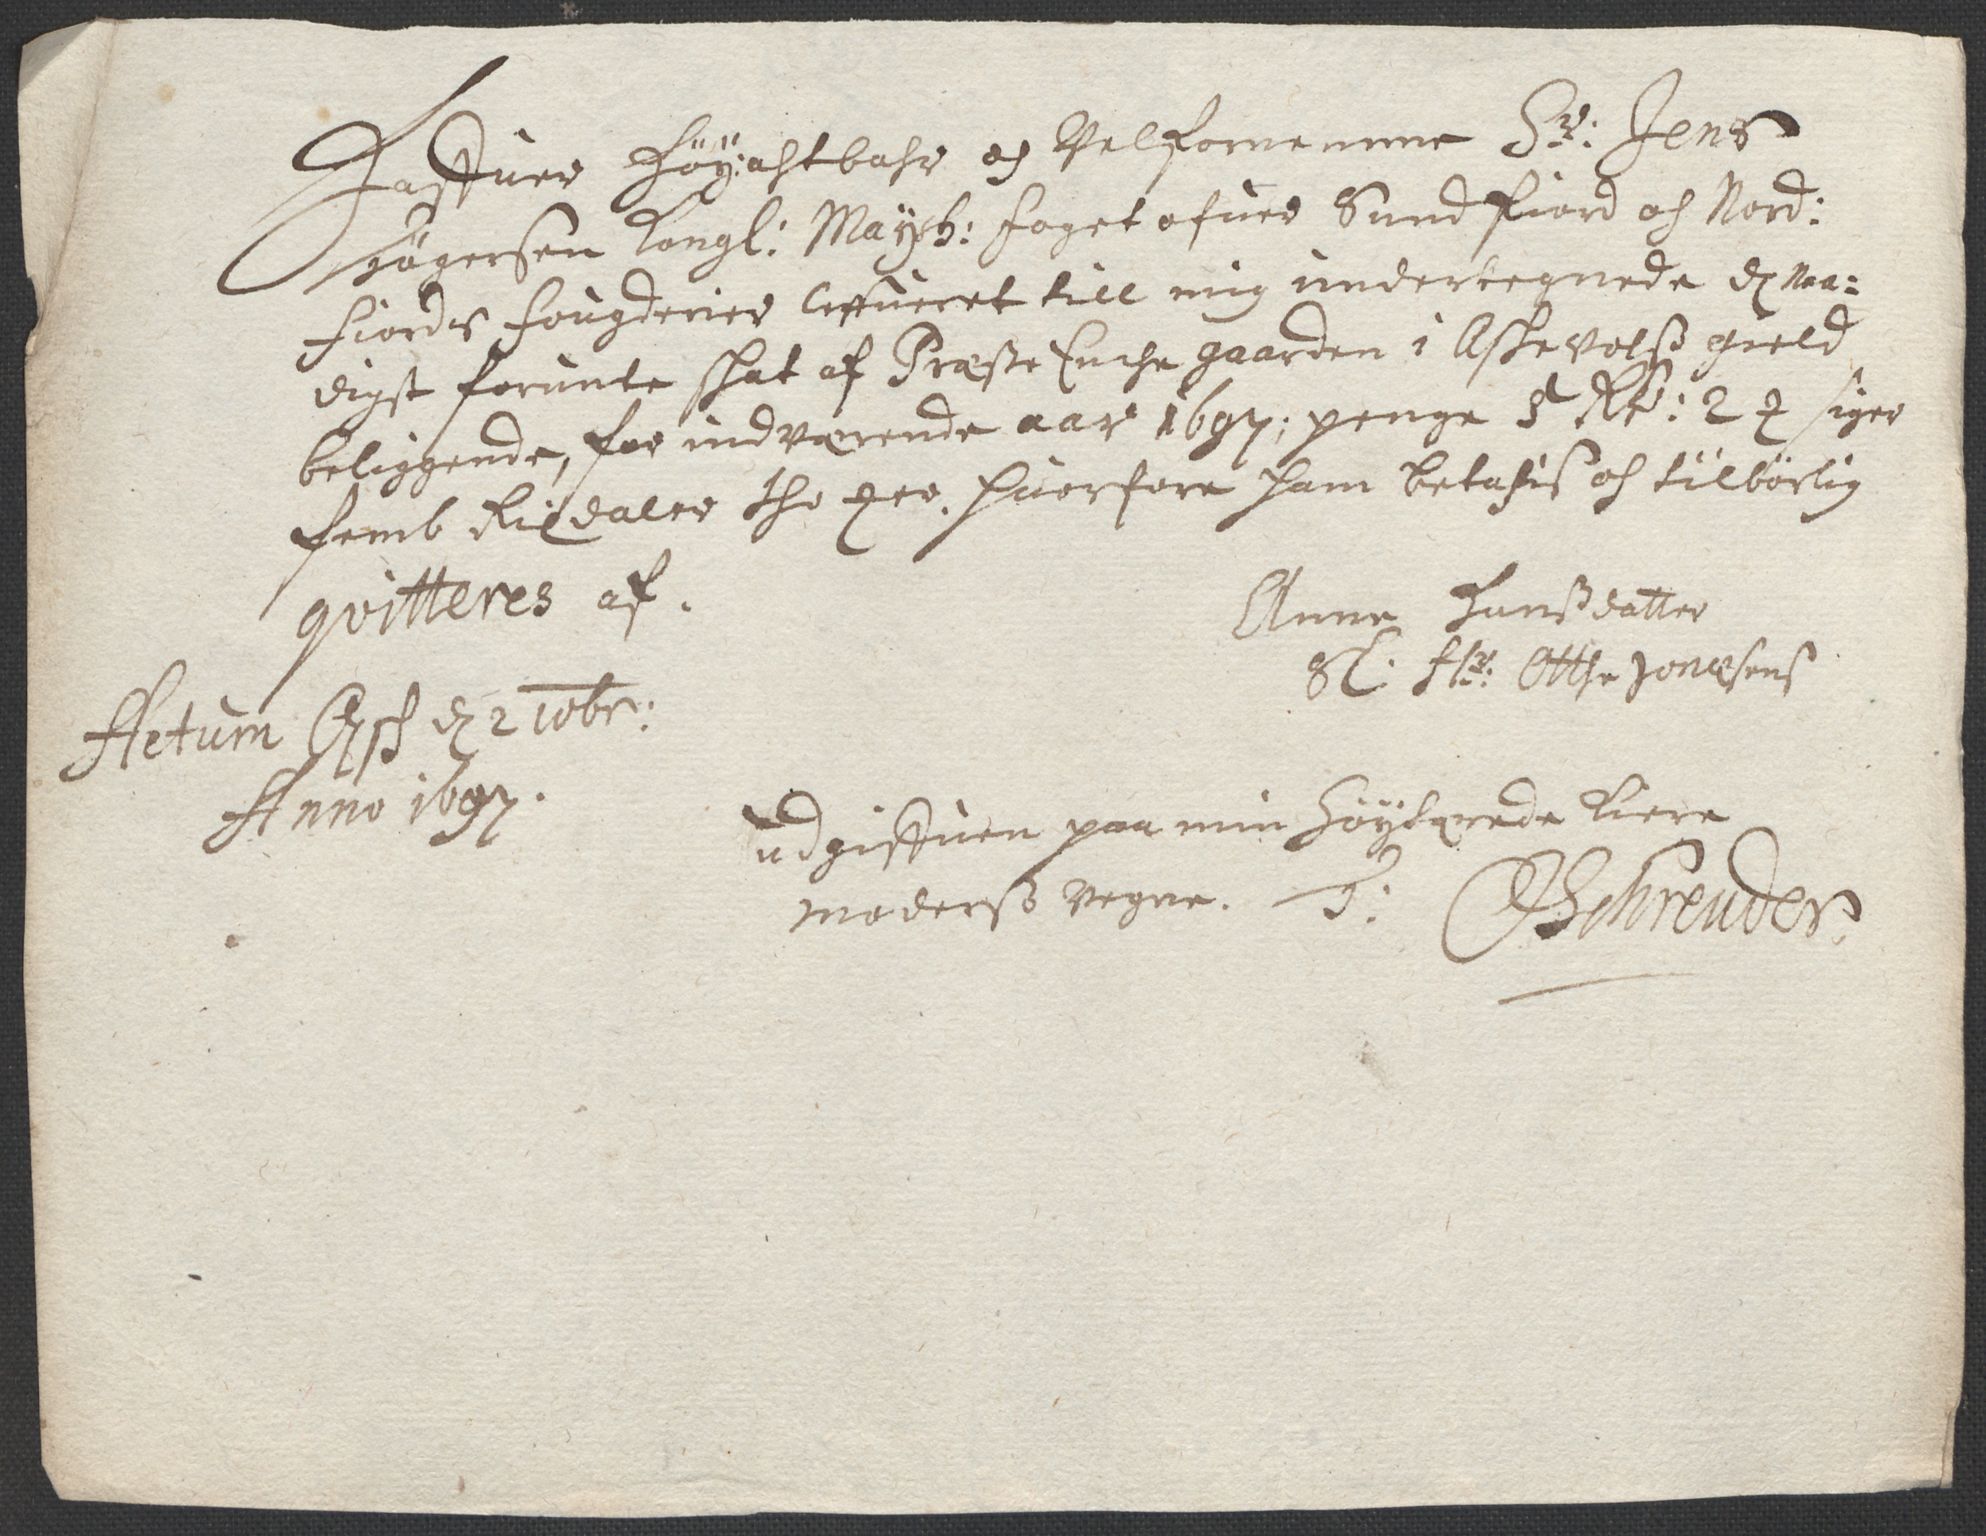 Haffuer Höy:ahtbahr og Velfornemme Sr: Jens
Högersen Kongl: Mayts: Foget ofuer Sund Fiord och Nord:
Fiords Fougderier leffueret till mig undertegnede d naa:
digst forunte skat af Præste Enche gaarden i Askevolß gield
beliggende, for indværende aar 1697; penge 5 Rd: 2 siger
femb Rixdaler tho Huorfore ham betachis och tilbörlig
qvitteres af.
Anne Hanßdatter
Sl. Hr: Otthe Jonæsens
Actum d 2 10br:
Anno 1697.
udgiffuen paa min Höytærede Kiere
moderß vegne. Schreuder.